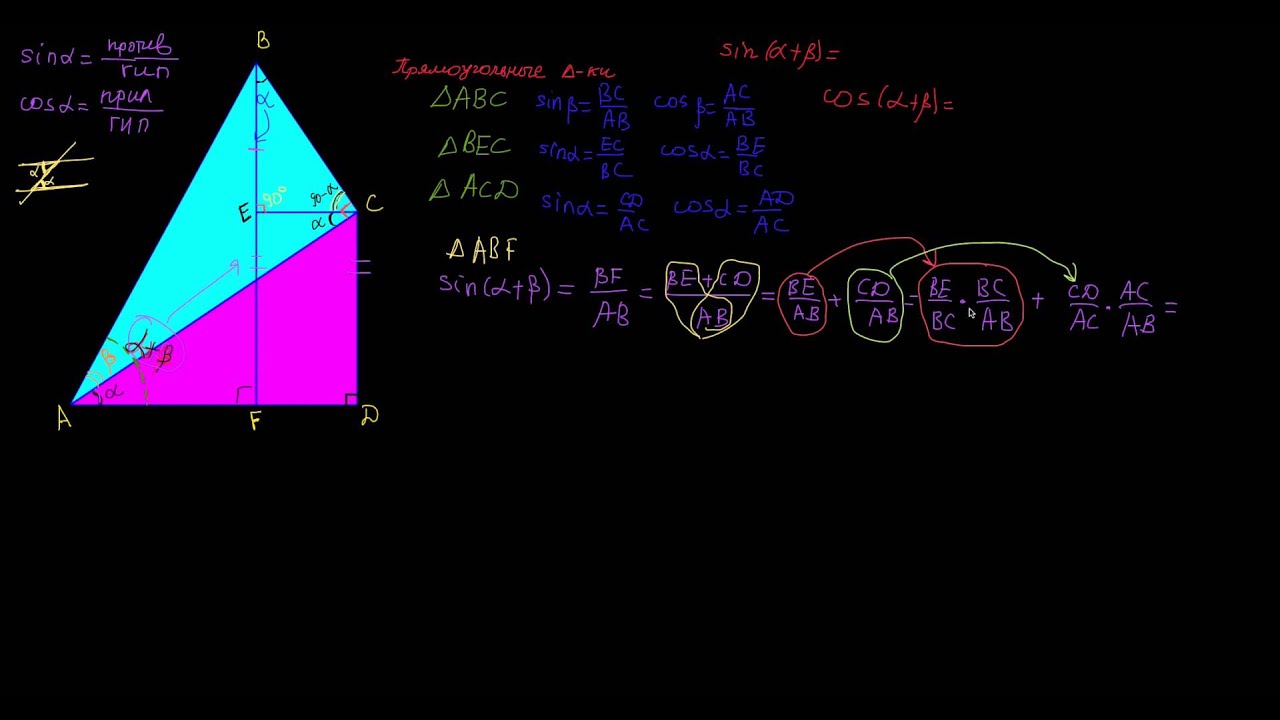 sinα = против/гип
cosα = прил/гип
α
α
B
α
E
90°
90-α
C
α
β
α+β
α
A
F
D
sin(α+β)=
Прямоугольные Δ-ки
cos(α+β)=
ΔABC sinβ = BC/AB cosβ = AC/AB
ΔBEC sinα = EC/BC cosα = BE/BC
ΔACD sinα = CD/AC cosα = AD/AC
ΔABF
sin(α+β) = BF/AB = BE+CD/AB = BE/AB + CD/AB = BE/BC · BC/AB + CD/AC · AC/AB =